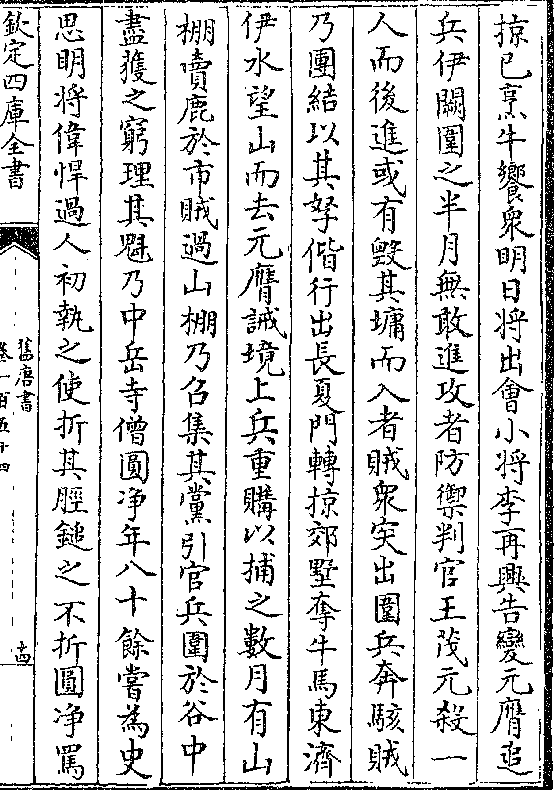 掠已烹牛饗衆明日將出會小將李再興告變元膺追
兵伊闕圍之半月無敢進攻者防禦判官王茂元殺一
人而後進或有毀其墉而入者賊衆突出圍兵奔駭賊
乃團結以其孥偕行出長夏門轉掠郊墅奪牛馬東濟
伊水望山而去元膺誡境上兵重購以捕之數月有山
棚賣鹿於市賊過山棚乃召集其黨引官兵圍於谷中
盡獲之窮理其魁乃中岳寺僧圓净年八十餘嘗為史
思明將偉悍過人初執之使折其脛鎚之不折圓净罵
欽定四庫全書
舊唐書
卷一百五十四
十四